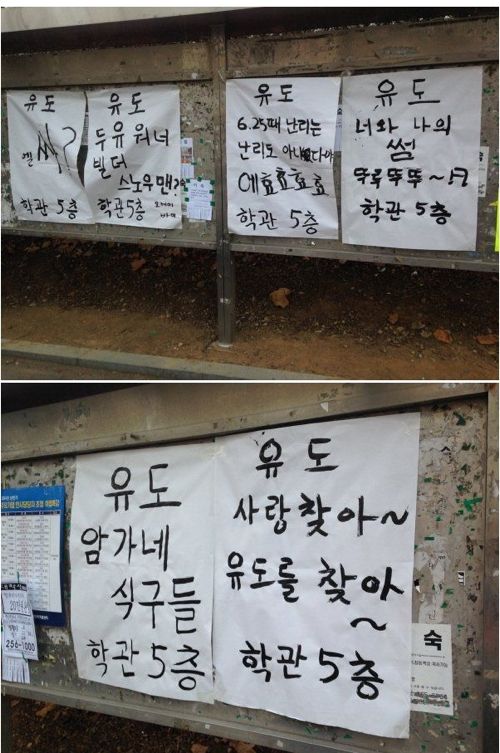 유도
싸?
학관 5층
유도
두유 워너
빌더
스노우맨
학관5층
유도
6.25때 난리는
난리도 아니였다야
에효효효
학관 5층
유도
너와 나의
썸
뚜루뚜뚜~♬
학관 5층
유도
암가네
식구들
학관 5층
유도
사랑찾아~
유도를 찾아
~
학관 5층
256-1000
숙